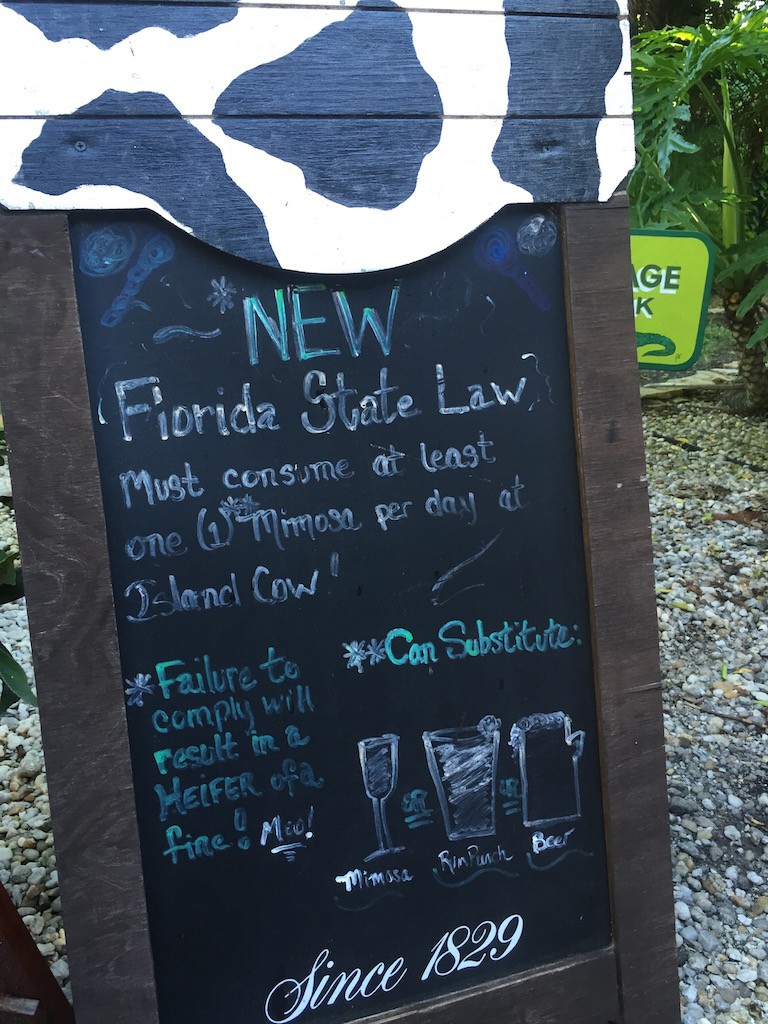 *NEW
Florida State Law
Must consume at least
one (1)** Mimosa per day at
Island Cow!
*Failure to
comply will
result in a
HEIFER of a
fine! Moo!
**Can Substitute:
or
or
Mimosa
Rum Punch
Beer
Since 1829
AGE
K